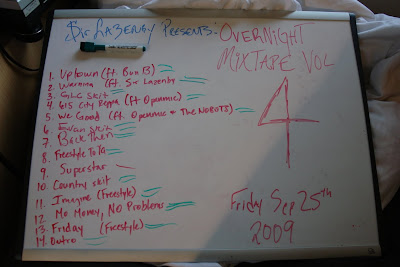 $ir LaZenby Presents: OVERNIGHT
MIXTAPE VOL
4
1. Uptown (ft. Bun B)
2. Warning (ft. Sir Lazenby)
3. GLC Skit
4. 615 City Reppa (ft Openmic)
5. We Good (ft Openmic & The NOBOTS)
6. Skit
7. Back Then
8. Freestyle To Ya
9. Superstar
10. Country skit
11. Imagine (freestyle)
12. Mo Money, NO Problems
13. Friday (Freestyle)
14. Outro
Friday Sep 25th
2009